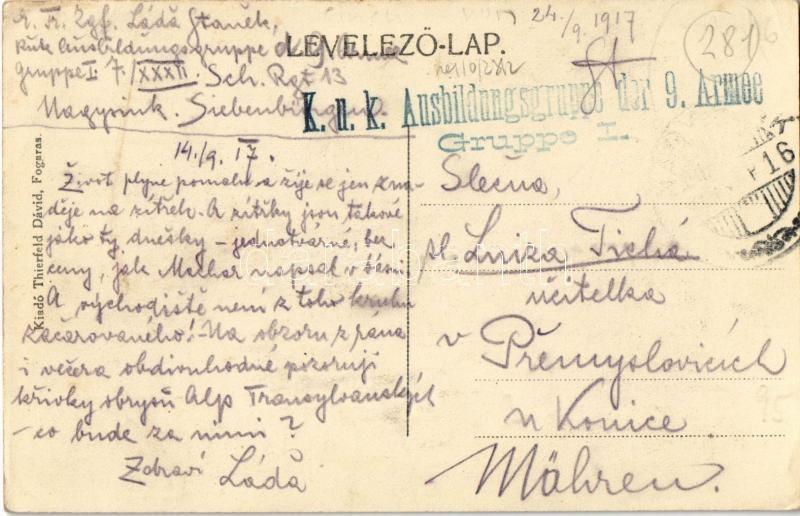 K. K. Zgf. Láďa Staněk,
kuk Ausbildungsgruppe d. 9. Armee
Gruppe I. 7/XXXII. Sch. Rgt 13
Nagysink. Siebenbürgen.
24./9. 1917
281
LEVELEZŐ-LAP.
K. u. k. Ausbildungsgruppe der 9. Armee
Gruppe I.
Kiadó Thierfeld Dávid, Fogaras.
14./9. 17.
Život plyne pomalu a žije se jen z na-
děje na zítřek. A zítřky jsou takové
jako ty dnešky – jednotvárné, bez
ceny, jak Machar napsal v básni
A východiště není z toho kruhu
začarovaného! – Na obzoru z rána
i večera obdivuhodné pozoruji
křivky obrysů Alp Transylvanských
– co bude za nimi?
Zdraví Láďa
Slečna,
sl. Luiza Tichá
učitelka
v Přemyslovicích
u Konice
Mähren.
16
95
darabanth.com